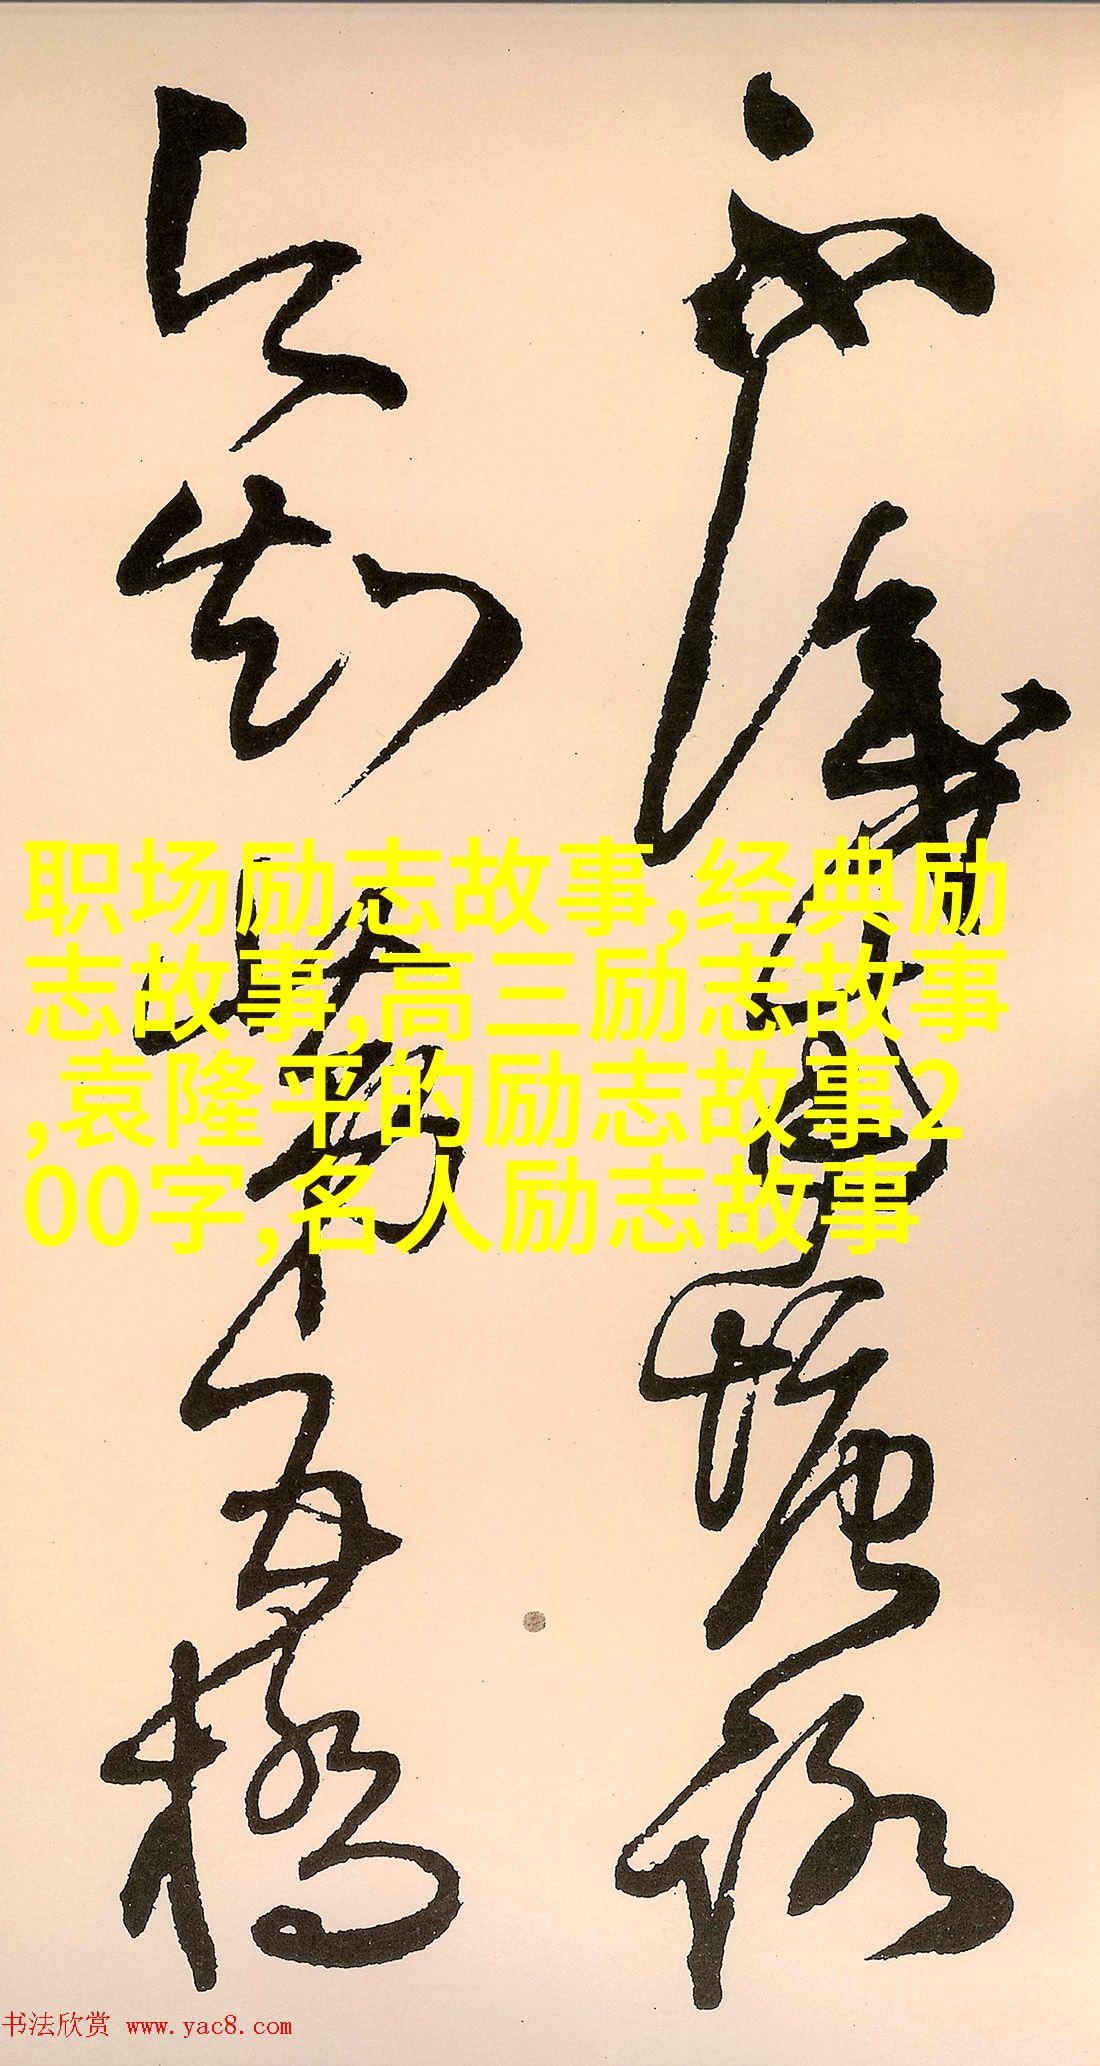 不識南塘路
今知第五橋
职场励志故事,经典励
志故事,高三励志故事
,袁隆平的励志故事2
00字,名人励志故事
书法欣赏 www.yac8.com